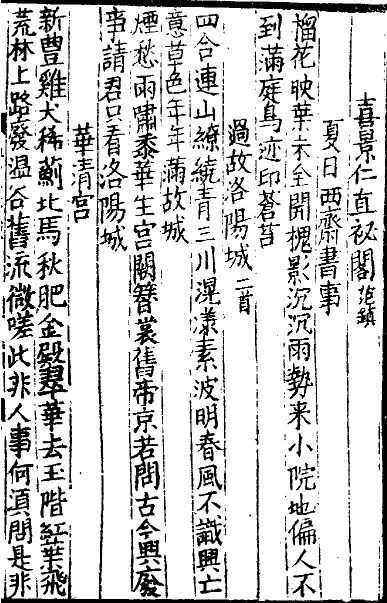 喜景仁直祕閣 范鎮
夏日西齋書事
榴花映葉未全開槐影沉沉雨勢来小院地偏人不
到滿庭鳥迹印蒼苔
過故洛陽城 二首
四合連山繚繞青三川滉漾素波明春風不識興亡
意草色年年滿故城
煙愁雨嘯黍華生宮闕簪裳舊帝京若問古今興廢
事請君只看洛陽城
華清宮
新豊雞犬稀薊北馬秋肥金殿翠華去玉階紅葉飛
荒林上路發温谷舊流微嗟此非人事何湏問是非